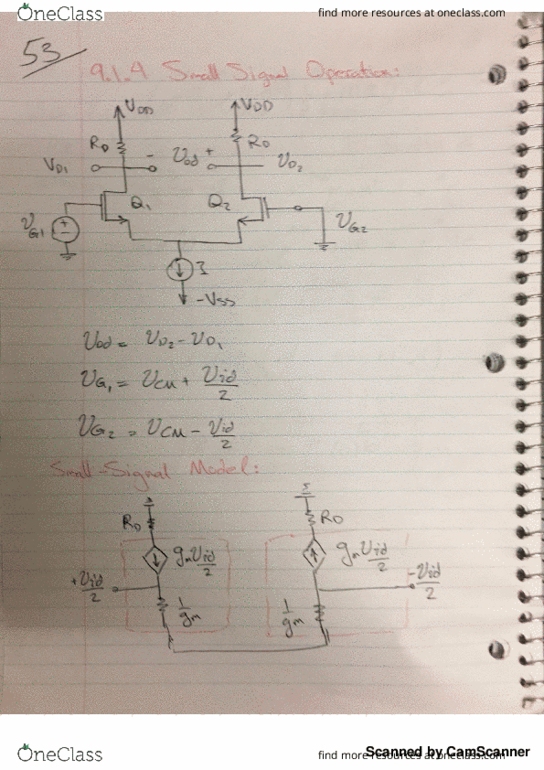 OneClass
find more resources at oneclass.com
53
9.1.4 Small Signal Operation:
VDD
VDD
RD
RD
VD1
-
Vod
+
VD2
Q1
Q2
VG1
+
-
VG2
I
-VSS
Vod = VD2 - VD1
VG1 = VCM + Vid/2
VG2 = VCM - Vid/2
Small-Signal Model:
RD
RD
gm Vid/2
gm Vid/2
+Vid/2
-Vid/2
1/gm
1/gm
OneClass
find more resources at oneclass.com
Scanned by CamScanner